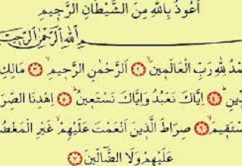 أَعُوذُ بِاللَّهِ مِنَ الشَّيْطَانِ الرَّجِيمِ
اللَّهِ الرَّحْمَنِ الرَّحِيمِ
ـدُ لِلَّهِ رَبِّ الْعَالَمِينَ الرَّحْمَنِ الرَّحِيمِ مَالِكِ
ـينِ إِيَّاكَ نَعْبُدُ وَإِيَّاكَ نَسْتَعِينُ اهْدِنَا الصِّرَ
ـسْتَقِيمَ صِرَاطَ الَّذِينَ أَنْعَمْتَ عَلَيْهِمْ غَيْرِ الْمَغْضُـ
عَلَيْهِمْ وَلَا الضَّالِّينَ